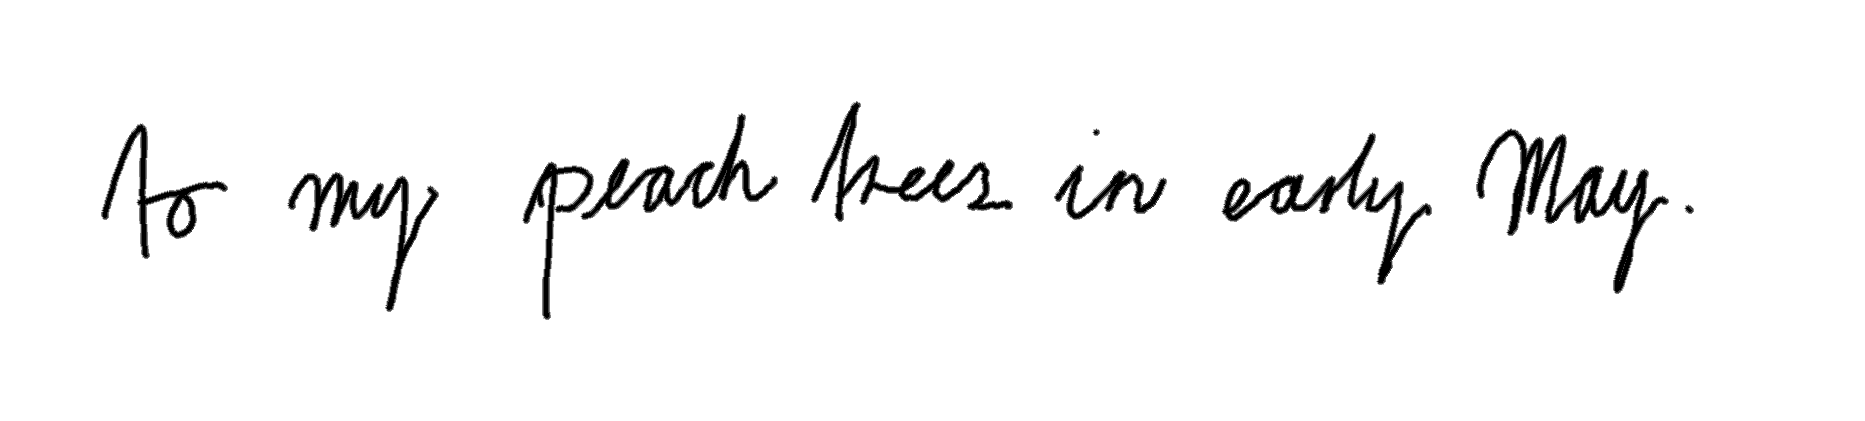 to my peach trees in early May.